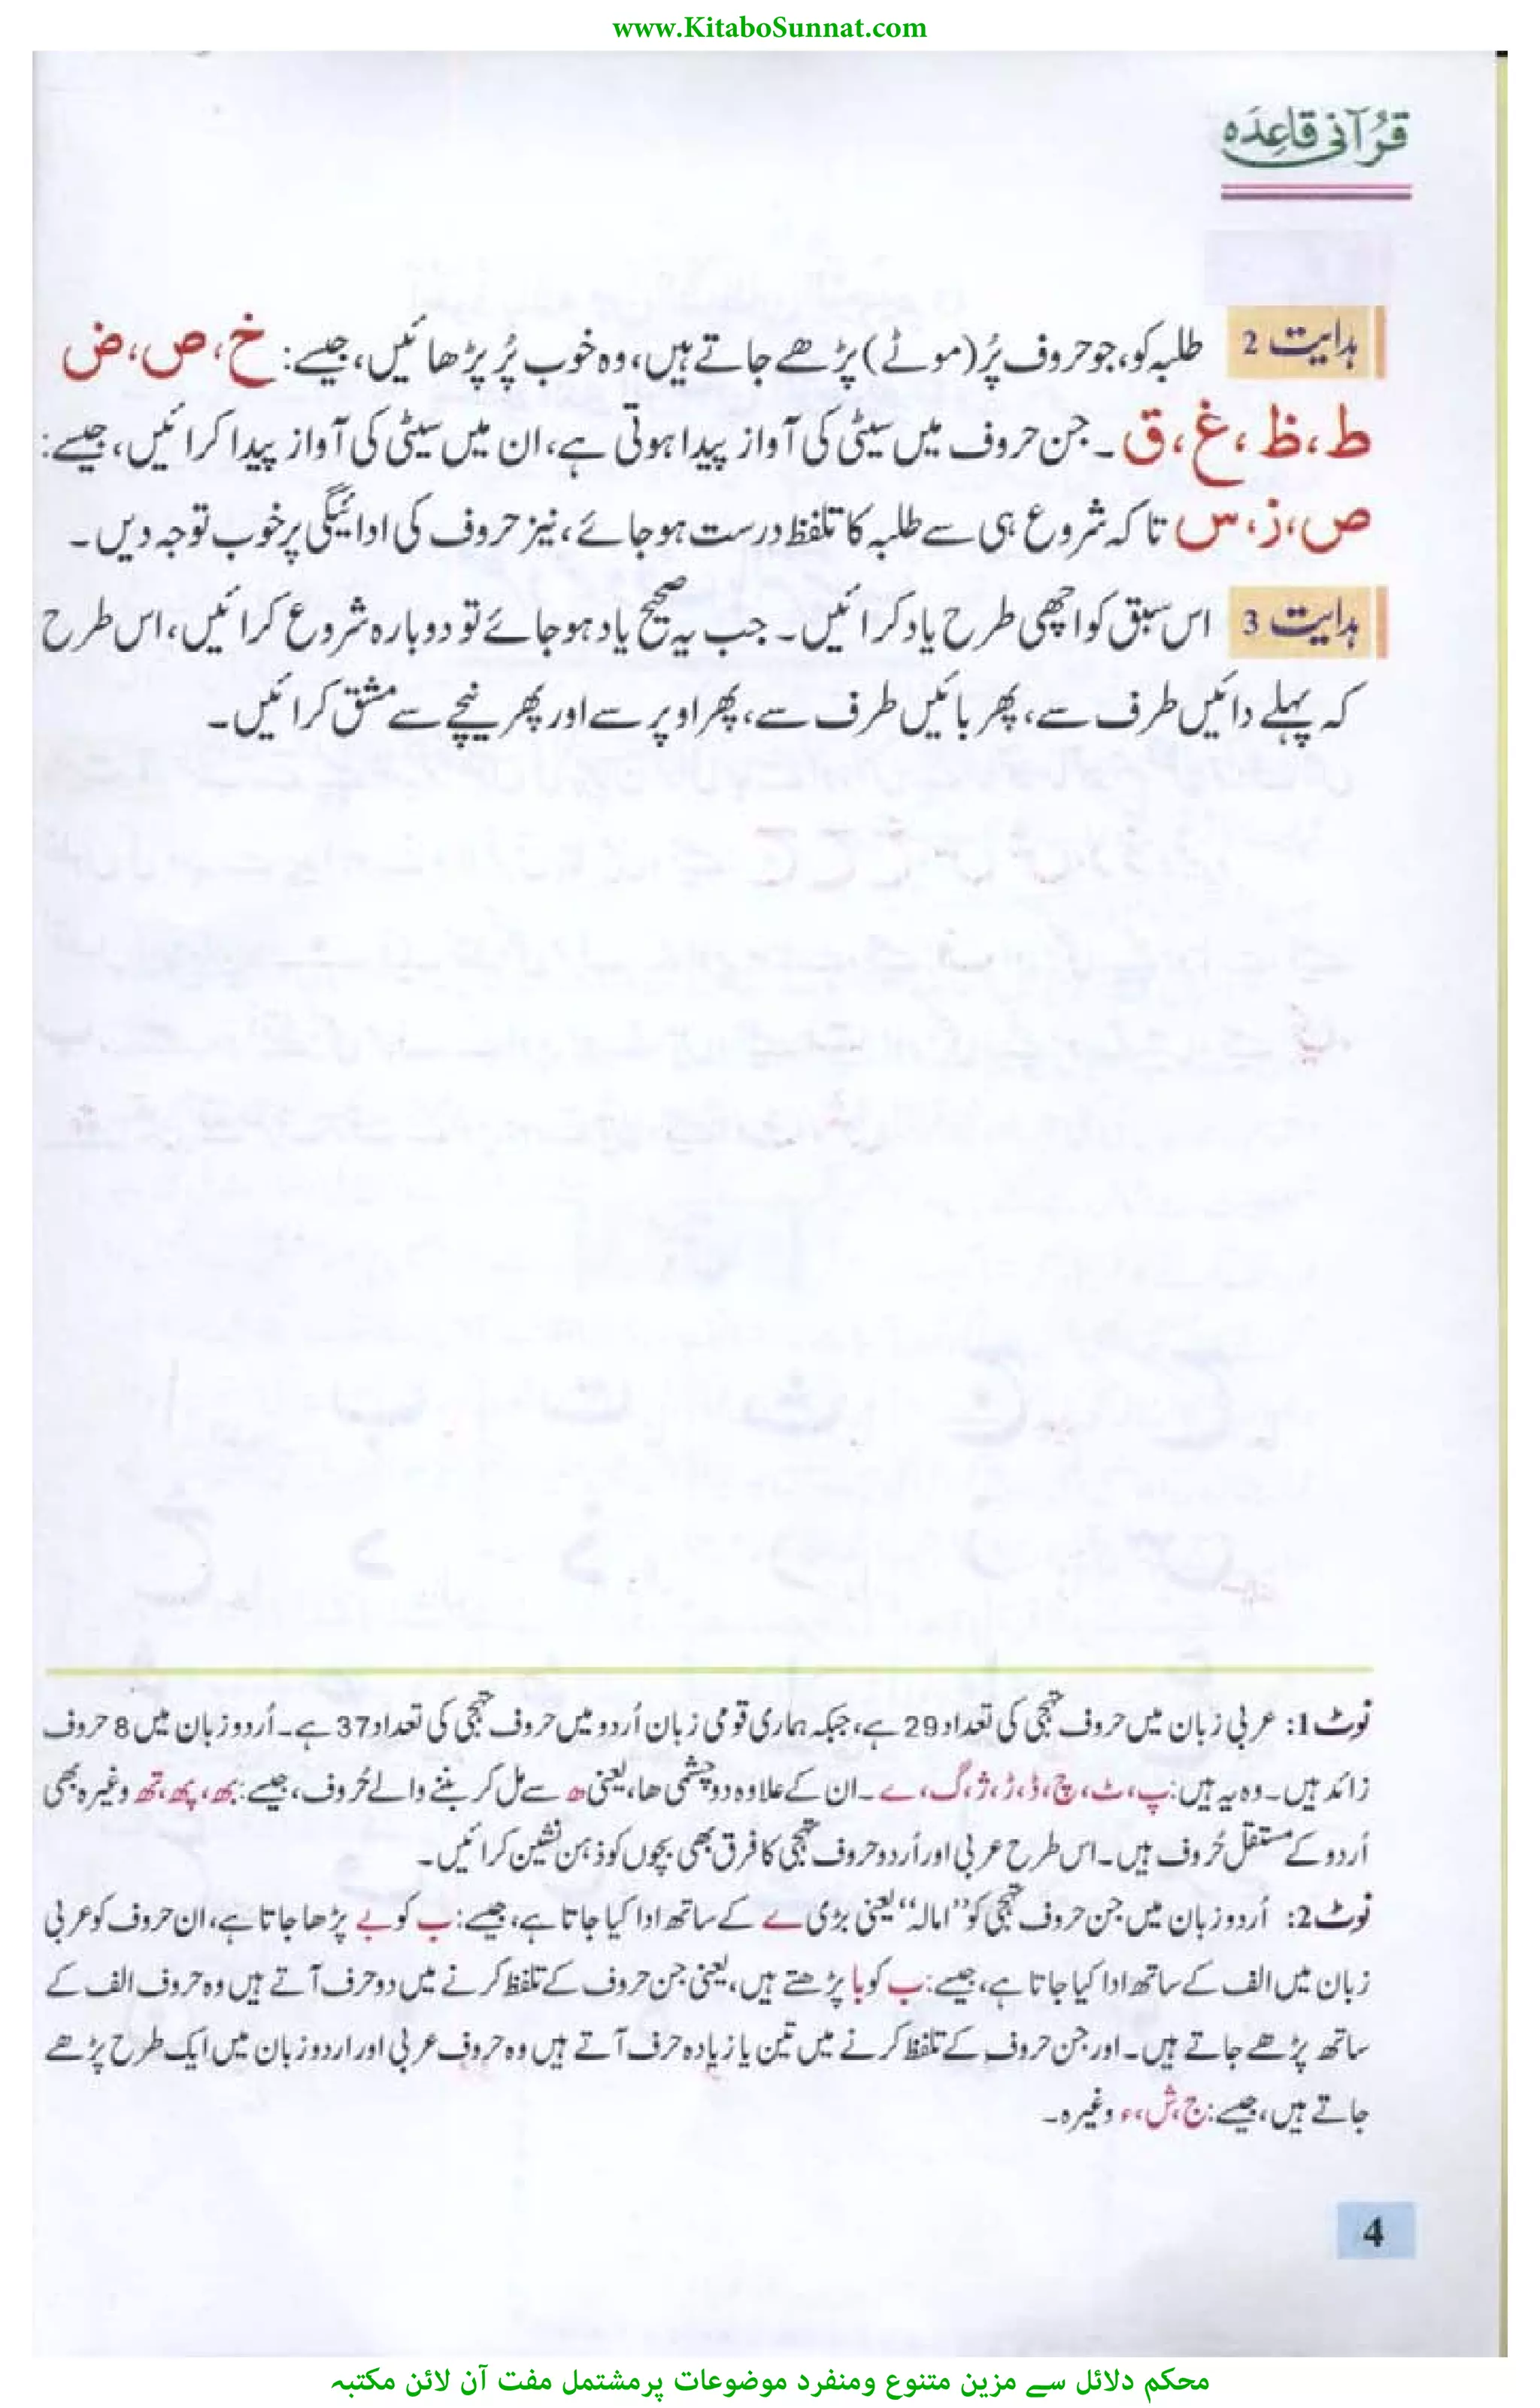 www.KitaboSunnat.com
قرآنی قاعدہ
ہدایت 2 طلبہ کو، جو حروف پُر (موٹے) پڑھے جاتے ہیں، وہ خوب پُر پڑھائیں، جیسے: خ، ص، ض
ط، ظ، غ، ق۔ جن حروف میں سیٹی کی آواز پیدا ہوتی ہے، ان میں سیٹی کی آواز پیدا کرائیں، جیسے:
ص، ز، س تاکہ شروع ہی سے طلبہ کا تلفظ درست ہو جائے، نیز حروف کی ادائیگی پر خوب توجہ دیں۔
ہدایت 3 اس سبق کو اچھی طرح یاد کرائیں۔ جب یہ صحیح یاد ہو جائے تو دوبارہ شروع کرائیں، اس طرح
کہ پہلے دائیں طرف سے، پھر بائیں طرف سے، پھر اوپر سے اور پھر نیچے سے مشق کرائیں۔
نوٹ 1: عربی زبان میں حروف تہجی کی تعداد 29 ہے، جبکہ ہماری قومی زبان اُردو میں حروف تہجی کی تعداد 37 ہے۔ اُردو زبان میں 8 حروف
زائد ہیں۔ وہ یہ ہیں: پ، ٹ، چ، ڈ، ڑ، ژ، گ، ے۔ ان کے علاوہ دوچشمی ھا، یعنی ھ سے مل کر بننے والے حُروف، جیسے: بھ، پھ، تھ وغیرہ بھی
اُردو کے مستقل حُروف ہیں۔ اس طرح عربی اور اُردو حروف تہجی کا فرق بھی بچوں کو ذہن نشین کرائیں۔
نوٹ 2: اُردو زبان میں جن حروف تہجی کو ”امالہ“ یعنی بڑی ے کے ساتھ ادا کیا جاتا ہے، جیسے: ب کو بے پڑھا جاتا ہے، ان حروف کو عربی
زبان میں الف کے ساتھ ادا کیا جاتا ہے، جیسے: ب کو با پڑھتے ہیں، یعنی جن حروف کے تلفظ کرنے میں دو حرف آتے ہیں وہ حروف الف کے
ساتھ پڑھے جاتے ہیں۔ اور جن حروف کے تلفظ کرنے میں تین یا زیادہ حرف آتے ہیں وہ حروف عربی اور اردو زبان میں ایک طرح پڑھے
جاتے ہیں، جیسے: ج، ش، ء وغیرہ۔
4
محکم دلائل سے مزین متنوع ومنفرد موضوعات پرمشتمل مفت آن لائن مکتبہ